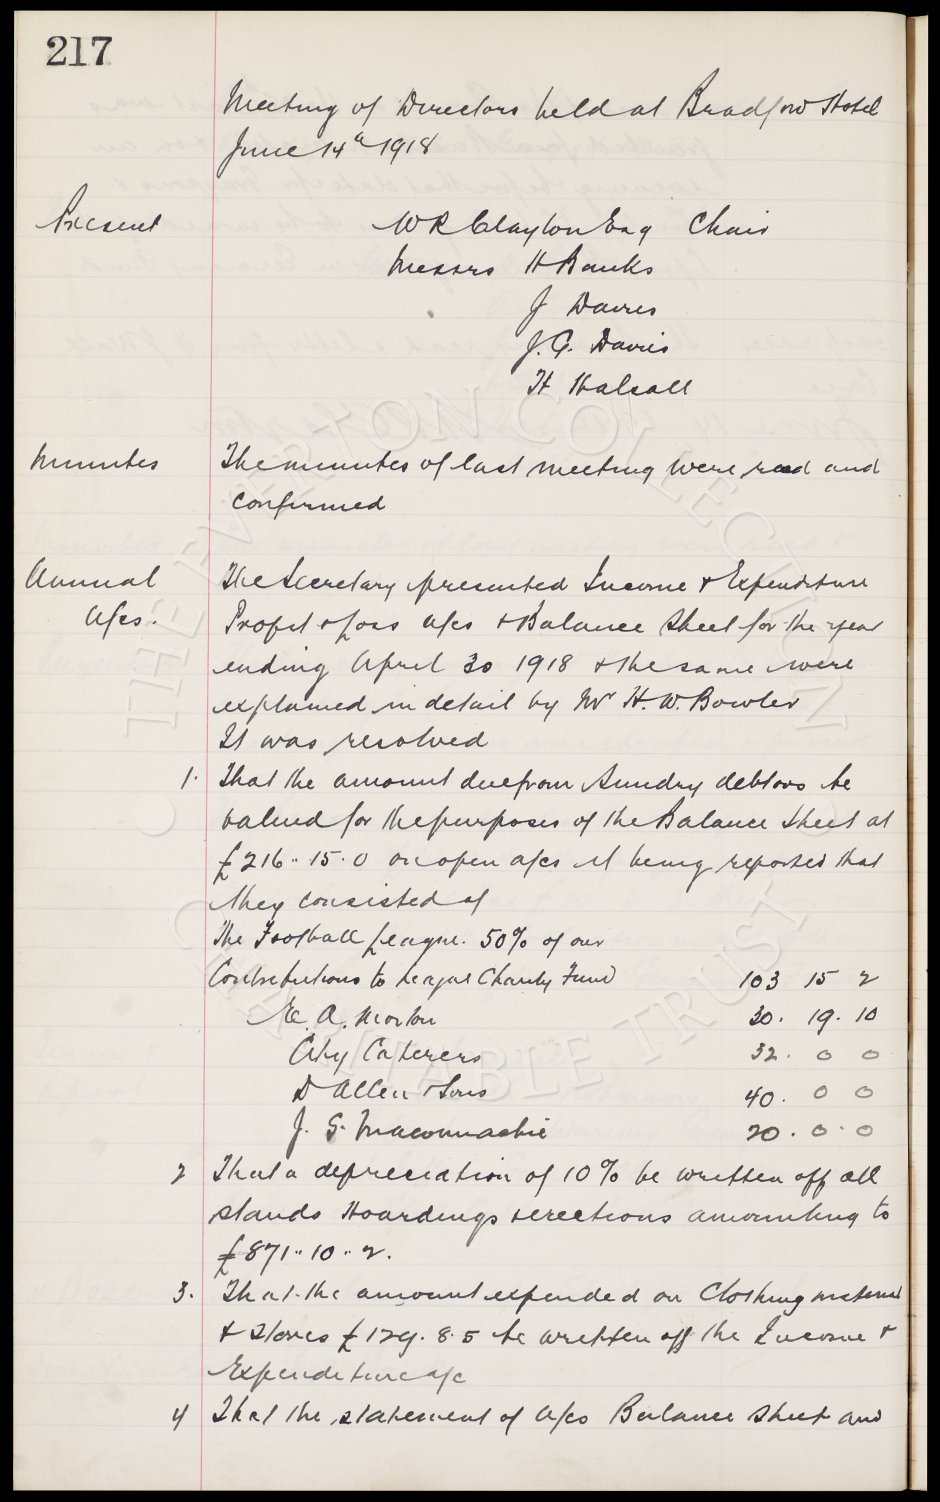 217
Meeting of Directors held at Bradford Hotel
June 14th 1918
Present W R Clayton Esq Chair
Messrs H Banks
J Davies
J. C. Davies
H Halsall
Minutes The minutes of last meeting were read and
confirmed
Annual The Secretary presented Income & Expenditure
A/cs. Profit & Loss a/cs & Balance Sheet for the year
ending April 30 1918 & the same were
explained in detail by Mr H. W. Bowler
It was resolved
1. That the amount due from Sundry debtors be
valued for the purposes of the Balance Sheet at
£216.. 15. 0 on open a/cs it being reported that
they consisted of
The Football League. 50% of our
Contributions to League Charity Fund 103 15 2
E. A. Morton 30. 19. 10
City Caterers 32. 0 0
D Allen & Sons 40. 0 0
J. S. Maconnachie 20. 0. 0
2 That a depreciation of 10% be written off all
stands Hoardings & erections amounting to
£871.. 10.. 2.
3. That the amount expended on Clothing material
& stores £129. 8. 5 be written off the Income &
Expenditure a/c
4 That the statement of a/cs Balance Sheet and
THE EVERTON COLLECTION
CHARITABLE TRUST